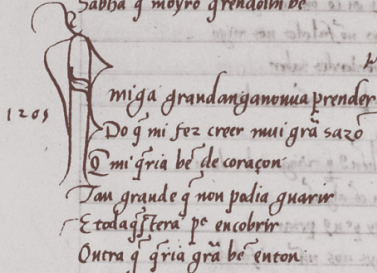 Sabha q̃ moyro q̃rendolhi bẽ
1205
Amiga grandanganonuia prender
Do q̃ mi fez creer mui grã sazõ
Q̃ mi q̃ria bẽ de coraçon
Tan grande q̃ non podia guarir
E todaq̃sterã pᵉ encobrir
Outra q̃ q̃ria grã bẽ enton